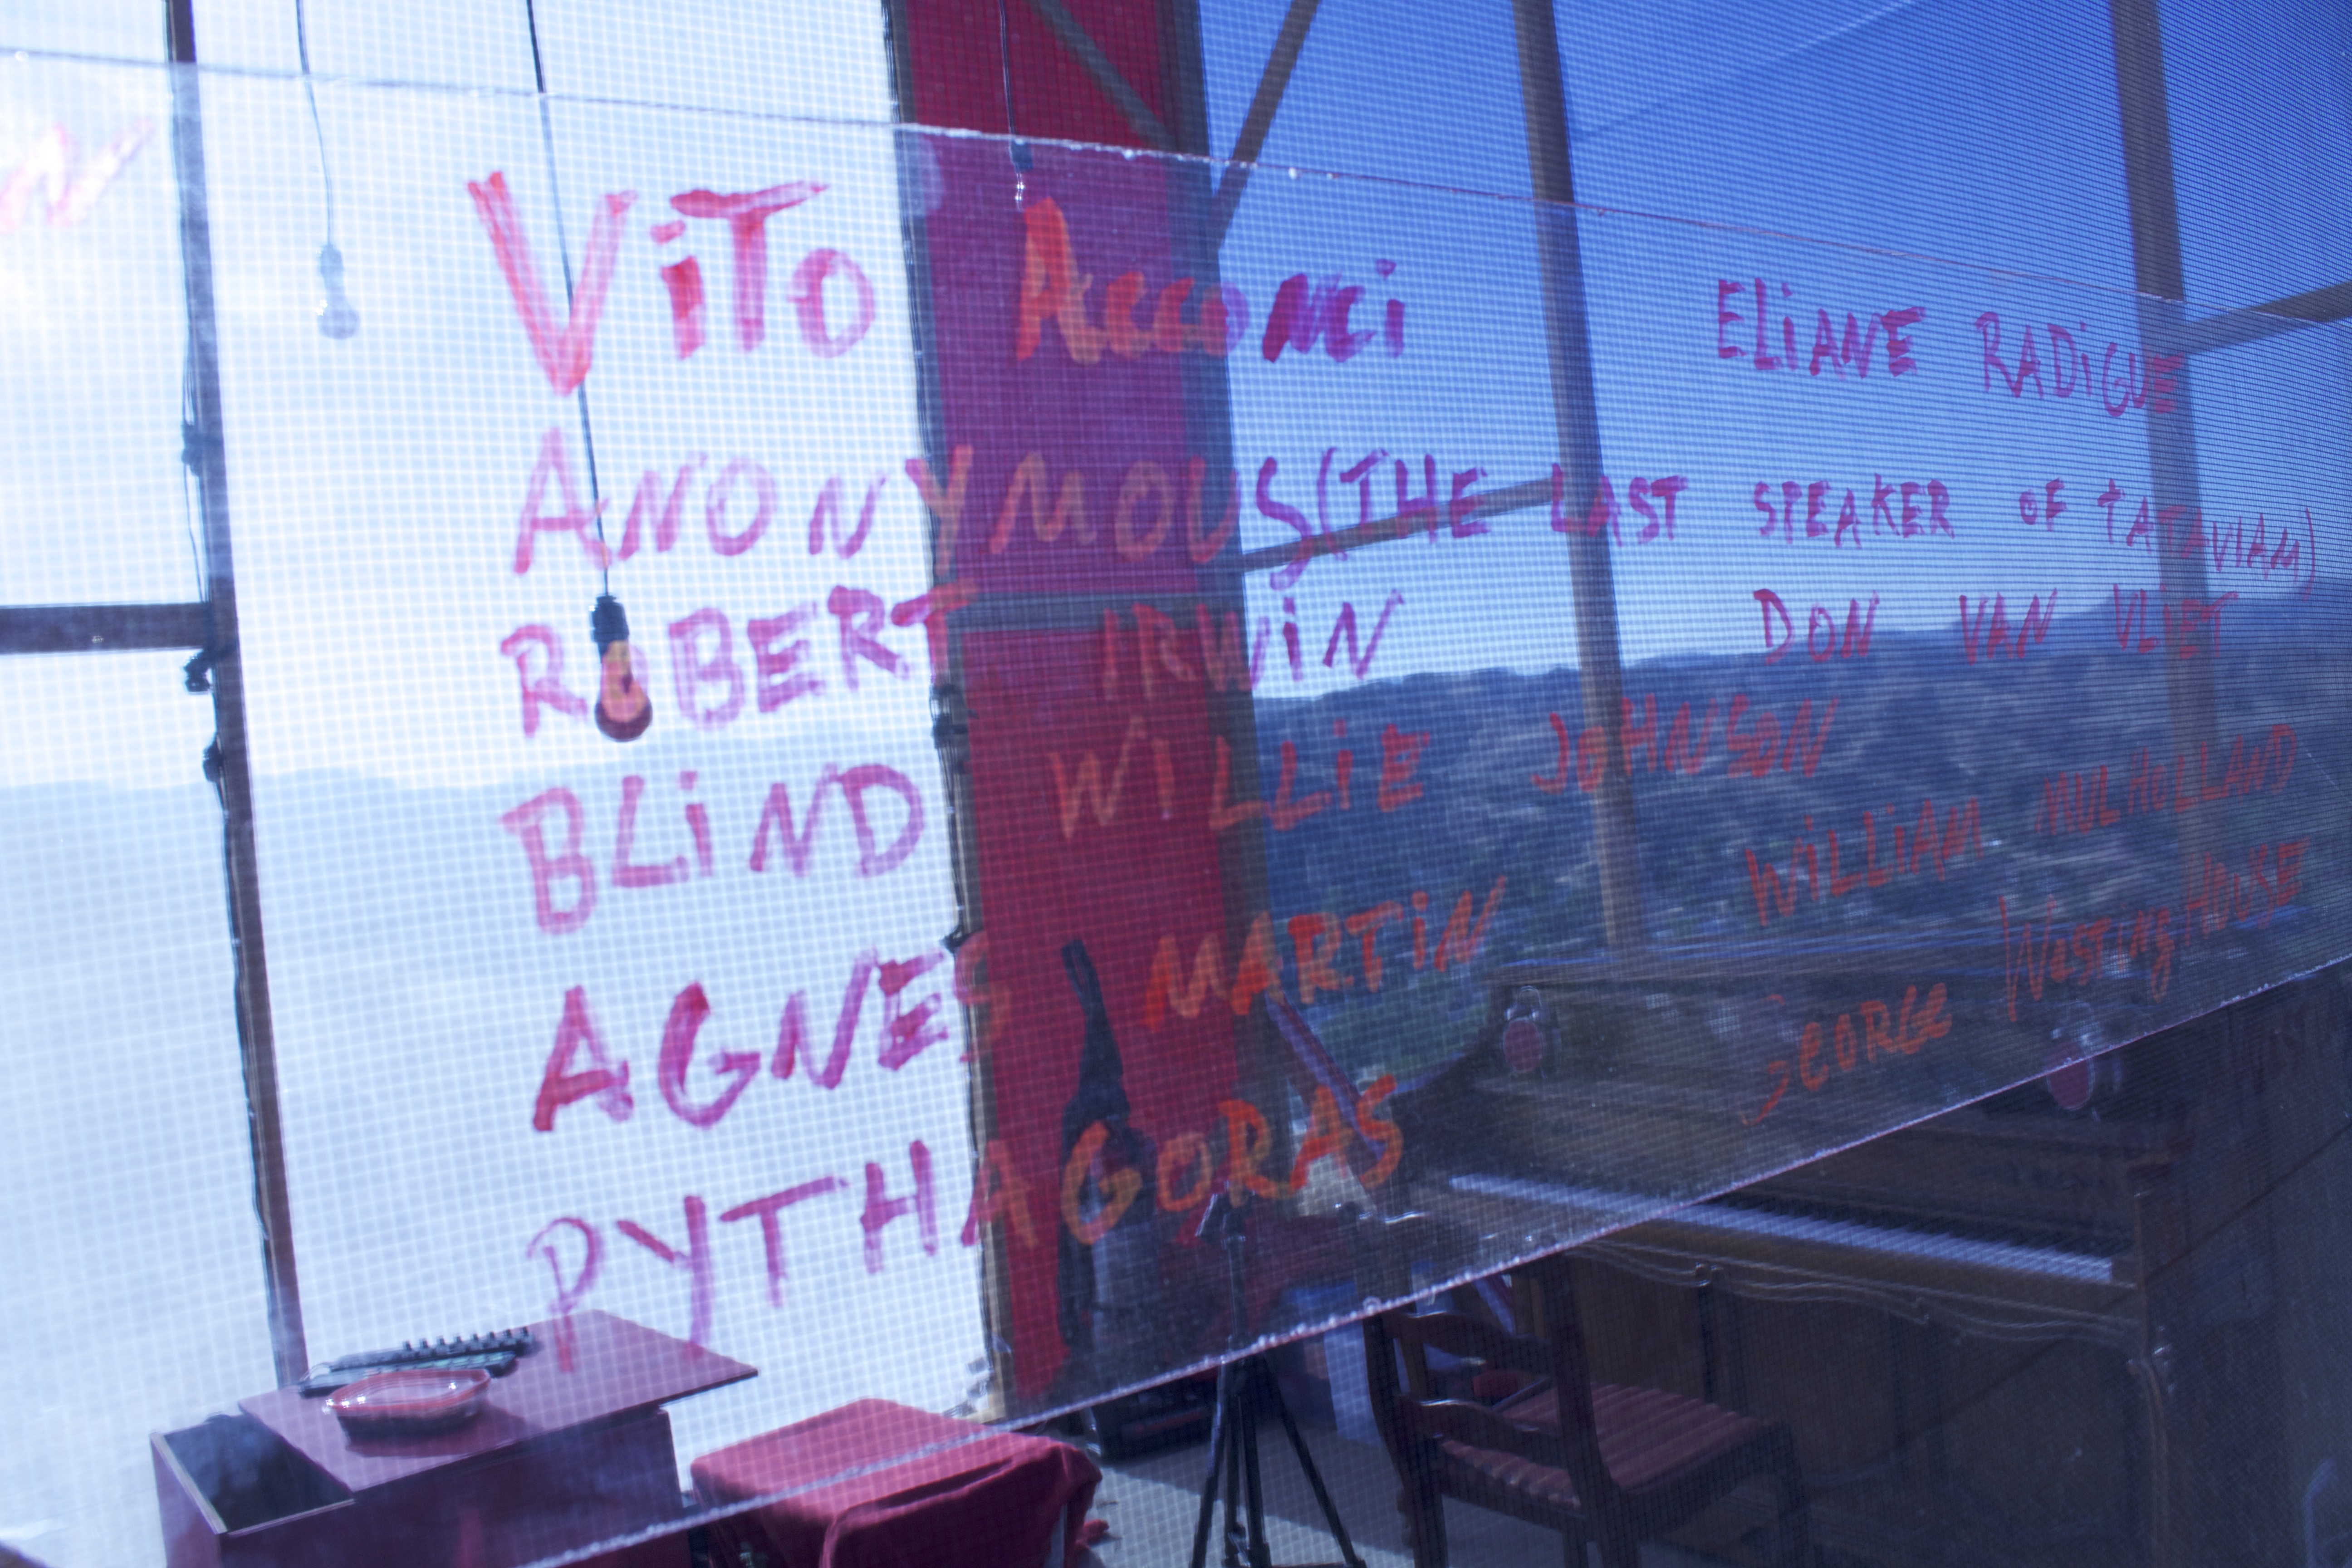 N
VITO ACCONCI ELIANE RADIGUE
ANONYMOUS (THE LAST SPEAKER OF TATAVIAM)
ROBERT IRWIN DON VAN VLIET
BLIND WILLIE JOHNSON
WILLIAM MULHOLLAND
AGNES MARTIN
GEORGE WESTINGHOUSE
PYTHAGORAS